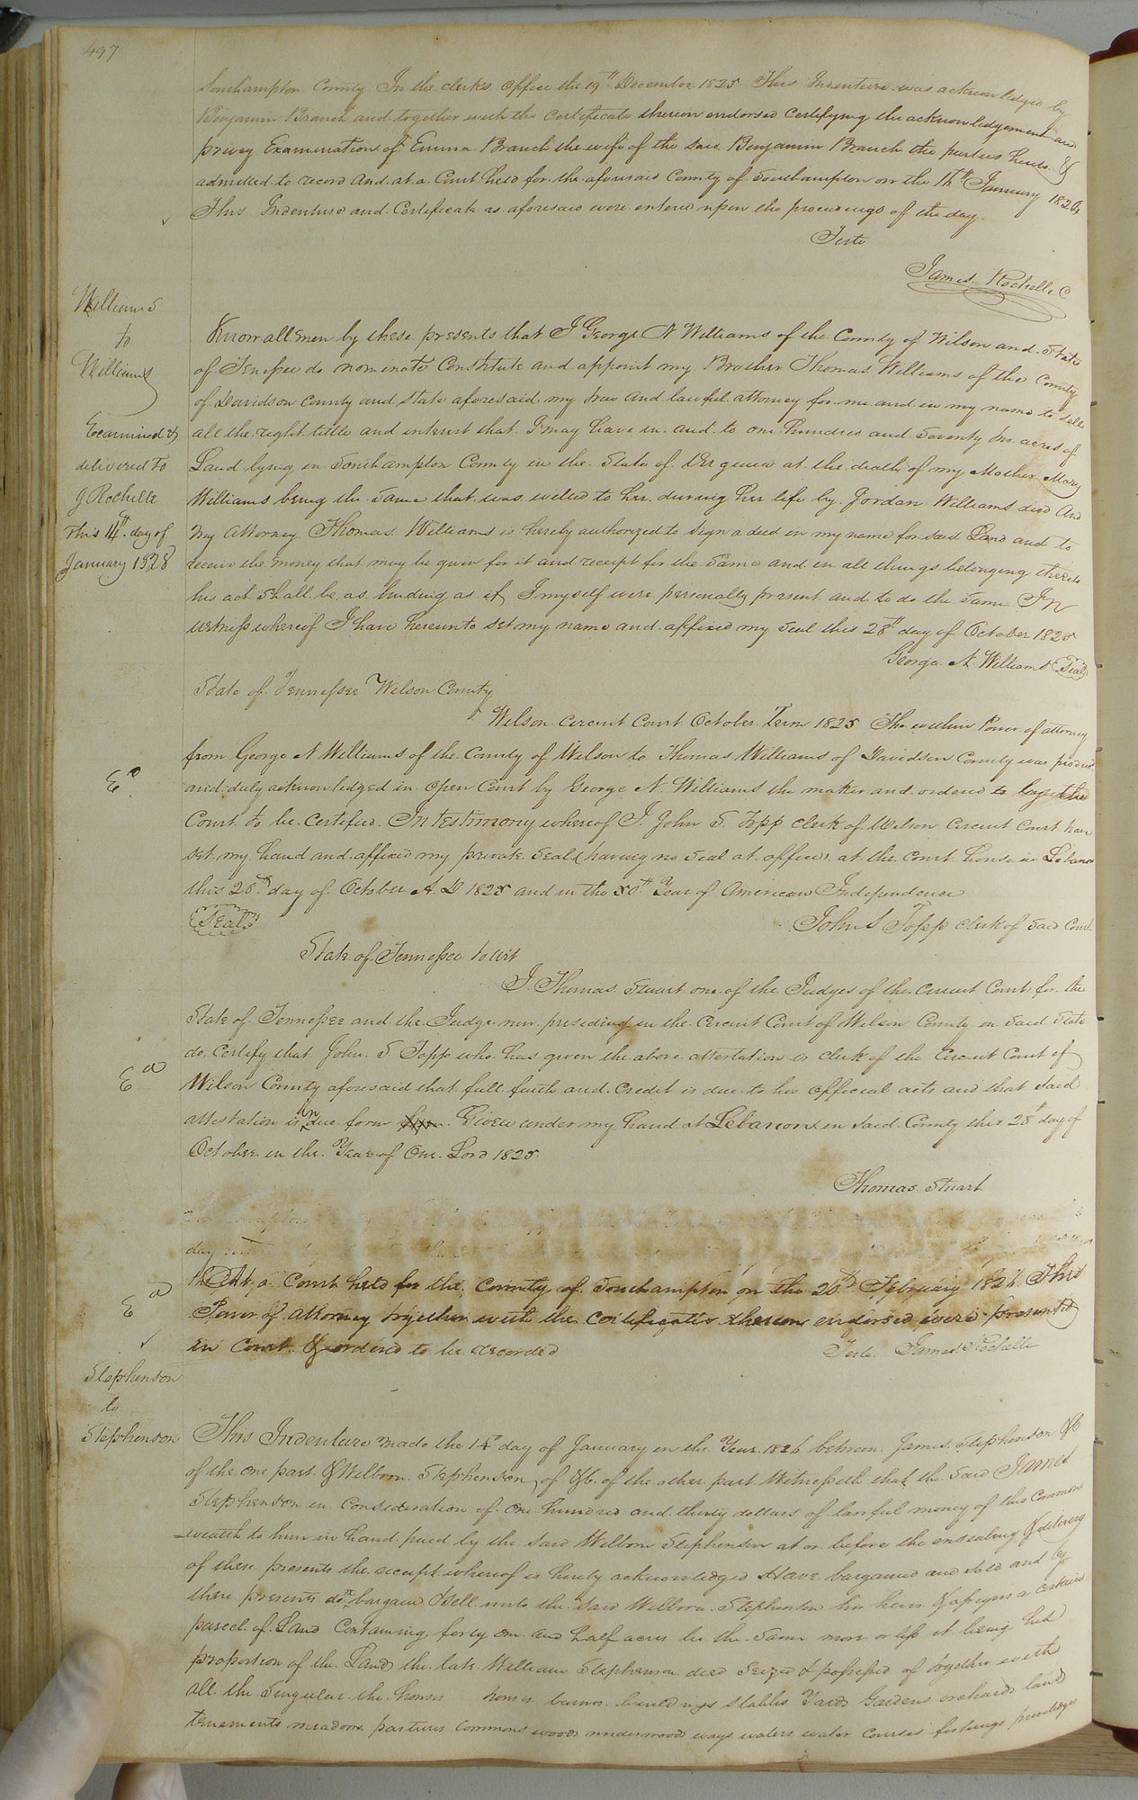 497
Southampton County In the clerks office the 19th December 1825 This Indenture was acknowledged by
Benjamin Branch and together with the certificate thereon endorsed certifying the acknowledgement and
privy Examination of Emma Branch the wife of the said Benjamin Branch the parties hereto &
admitted to record and at a Court held for the aforesaid County of Southampton on the 16th January 1826
This Indenture and Certificate as aforesaid were entered upon the proceedings of the day
Teste
James Rochelle C
Williams
to
Williams
Examined &
delivered to
J Rochelle
this 14th day of
January 1828
Know all men by these presents that I George N Williams of the County of Wilson and State
of Tenessee do nominate Constitute and appoint my Brother Thomas Williams of the County
of Davidson County and State aforesaid my true and lawful attorney for me and in my name to sell
all the right tittle and interest that I may have in and to one hundred and Seventy acres of
Land lying in Southampton County in the State of Virginia at the death of my Mother Mary
Williams being the same that was willed to her during her life by Jordan Williams decd And
my Attorney Thomas Williams is hereby authorized to sign a deed in my name for said Land and to
receive the money that may be given for it and receipt for the same and in all things belonging thereto
his act shall be as binding as if I myself were personally present and to do the same In
witness whereof I have hereunto set my name and affixed my seal this 28th day of October 1825
George N. Williams Seal
State of Tennessee Wilson County
Wilson Circuit Court October Term 1825 The within Power of attorney
from George N Williams of the County of Wilson to Thomas Williams of Davidson County was produced
and duly acknowledged in open Court by George N. Williams the maker and ordered to
Court to be Certified. In testimony whereof I. John S. Topp Clerk of Wilson Circuit Court have
set my hand and affixed my private seal (having no seal at office) at the Court house in Lebanon
this 28th day of October A. D 1825 and in the 50th Year of American Independence
Seal
John S Topp clerk of said Court
Ed
State of Tennessee to wit
I Thomas Stuart one of the Judges of the Circuit Court for the
State of Tennessee and the Judge now presiding in the Circuit Court of Wilson County in said State
do certify that John S Topp who has given the above attestation is clerk of the Circuit Court of
Wilson County aforesaid that full faith and Credit is due to his official acts and that said
attestation is in due form. Given under my hand at Lebanon in said County this 28th day of
October in the Year of Our Lord 1825.
Ed
Thomas Stuart
day
At a Court held for the County of Southampton on the 20th February 1826 This
Power of Attorney together with the Certificates thereon endorsed were presented
in Court & ordered to be recorded
Teste James Rochelle
Ed
Stephenson
to
Stephenson
This Indenture made the 14th day of January in the Year 1826 between James Stephenson &c
of the one part & Wilborn Stephenson, of &c. of the other part Witnesseth that the said James
Stephenson in Consideration of One hundred and thirty dollars of lawful money of this common
-wealth to him in hand paid by the said Wilborn Stephenson at or before the ensealing & delivery
of these presents the receipt whereof is hereby acknowledged Have bargained and sold and by
these presents do bargain & sell unto the said Wilborn Stephenson his heirs & assigns a certain
parcel of Land Containing forty one and half acres be the same more or less it being his
proportion of the Land the late William Stephenson died Seized & possessed of together with
all the Singular the houses homes barns buildings stables Yards Gardens orchards land
tenements meadows pastures commons woods underwoods ways waters water courses fishings priviledges